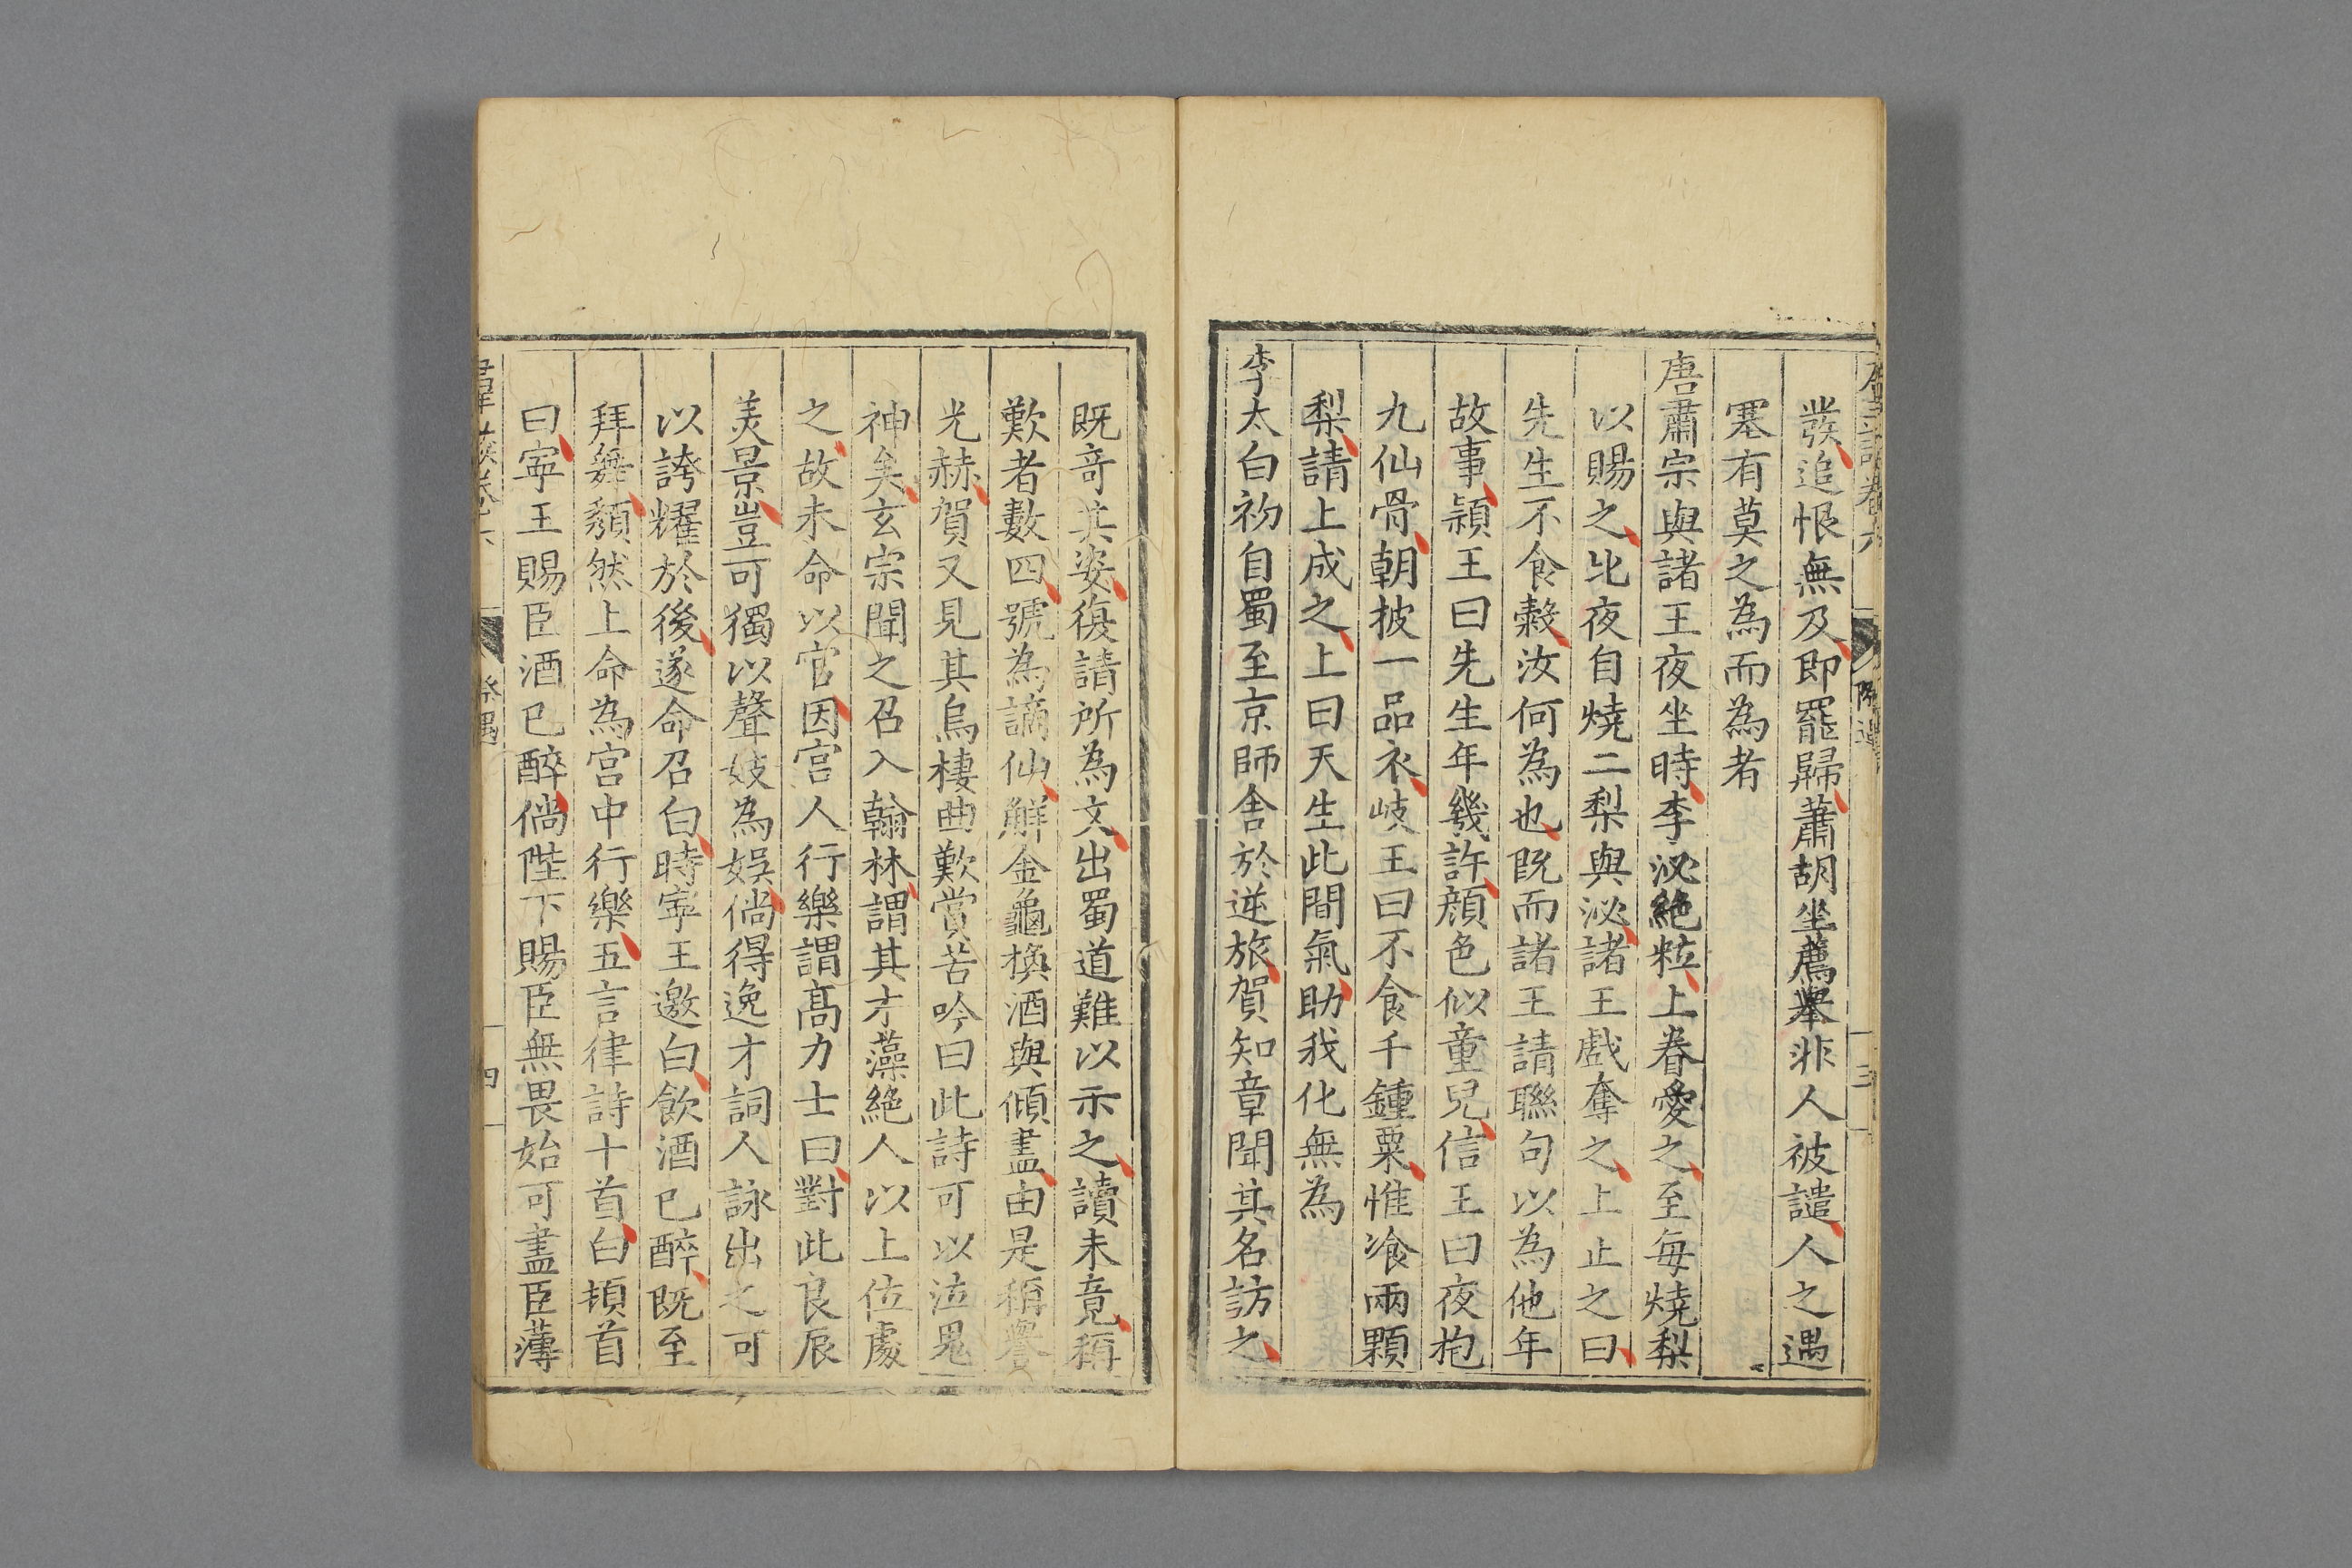 發追恨無及即罷歸蕭胡坐薦舉非人被譴人之遇
塞有莫之為而為者
唐肅宗與諸王夜坐時李泌絕粒上眷愛之至每燒梨
以賜之比夜自燒二梨與泌諸王戲奪之上止之曰
先生不食穀汝何為也既而諸王請聯句以為他年
故事頴王曰先生年幾許顔色似童兒信王曰夜抱
九仙骨朝披一品衣岐王曰不食千鍾粟惟飡兩顆
梨請上成之上曰天生此間氣助我化無為
李太白初自蜀至京師舎於逆旅賀知章聞其名訪之
既竒其姿復請所為文出蜀道難以示之讀未竟稱
歎者數四號為謫仙觧金龜換酒與傾盡由是稱譽
光赫賀又見其烏棲曲歎賞苦吟曰此詩可以泣鬼
神矣玄宗聞之召入翰林謂其才藻絕人以上位處
之故未命以官因宫人行樂謂髙力士曰對此良辰
美景豈可獨以聲妓為娯倘得逸才詞人詠出之可
以誇耀於後遂命召白時寜王邀白飲酒已醉既至
拜舞頽然上命為宫中行樂五言律詩十首白頓首
曰寜王賜臣酒已醉倘陛下賜臣無畏始可盡臣薄
四